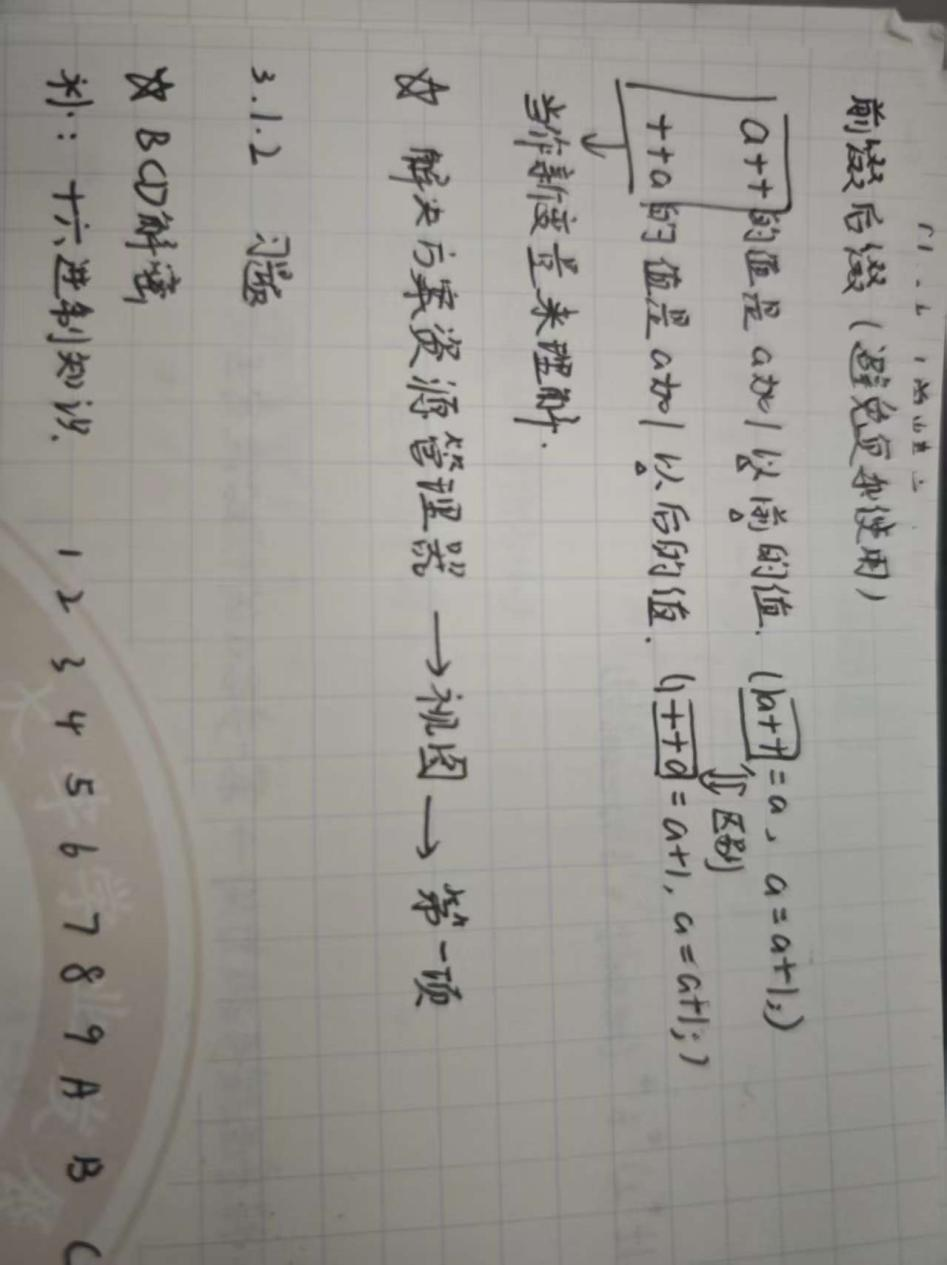 前缀后缀(避免复杂使用)
a++的值是a加1以前的值. (a++ = a, a=a+1;)
区别
++a的值是a加1以后的值. (++a = a+1, a=a+1;)
当作新变量来理解.
☆ 解决方案资源管理器 → 视图 → 第一项
3.1.2 习题
☆ BCD解密
补: 十六进制知识. 1 2 3 4 5 6 7 8 9 A B C